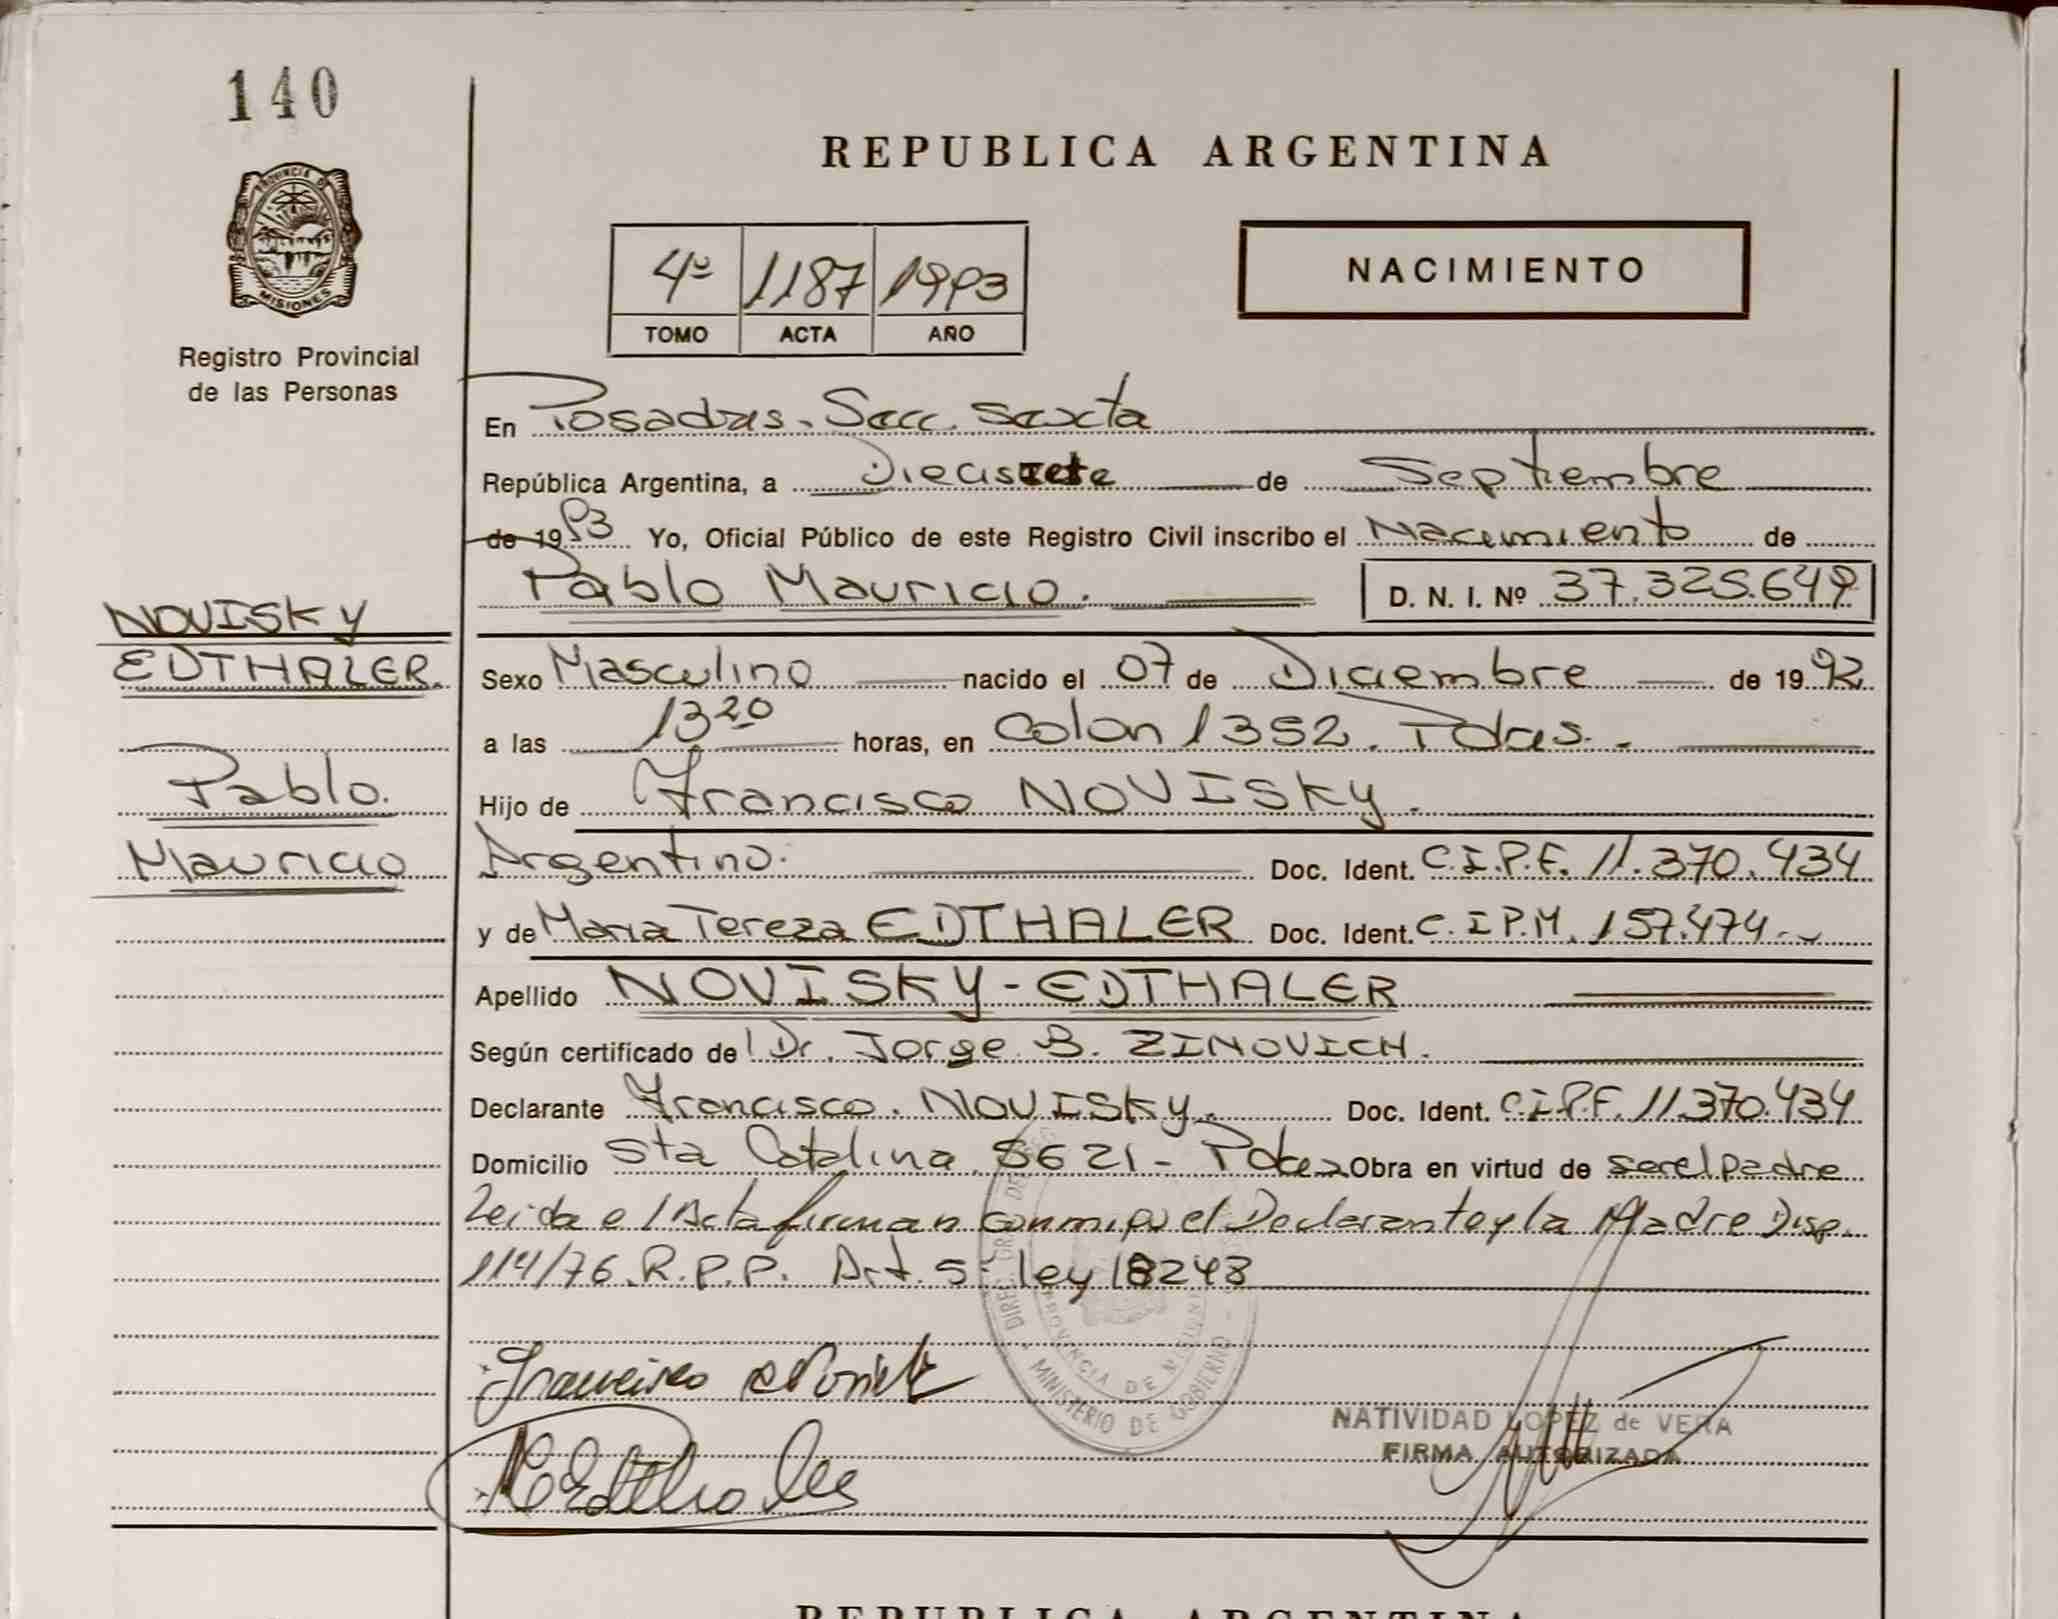 140
PROVINCIA DE
MISIONES
Registro Provincial
de las Personas
REPUBLICA ARGENTINA
4º 1187 1993
TOMO ACTA AÑO
NACIMIENTO
En Posadas. Secc. Sexta
República Argentina, a Diecisiete de Septiembre
de 1993 Yo, Oficial Público de este Registro Civil inscribo el Nacimiento de
Pablo Mauricio. D. N. I. Nº 37.325.649
NOVISKY
EDTHALER.
Pablo.
Mauricio
Sexo Masculino nacido el 07 de Diciembre de 1992
a las 13 20 horas, en Colon 1352. Pdas.
Hijo de Francisco NOVISKY.
Argentino. Doc. Ident. C.I.P.F. 11.370.434
y de Maria Tereza EDTHALER Doc. Ident. C.I.P.M. 157.474
Apellido NOVISKY-EDTHALER
Según certificado del Dr. Jorge B. ZINOVICH.
Declarante Francisco. NOVISKY. Doc. Ident. C.I.P.F. 11.370.434
Domicilio Sta Catalina 5621 - Pdas Obra en virtud de ser el padre
Leida el Acta firman conmigo el Declarante y la Madre Disp.
114/76. R.P.P. Art. 5º ley 18248
MINISTERIO DE GOBIERNO
PROVINCIA DE MISIONES
Francisco
NATIVIDAD LOPEZ de VERA
FIRMA AUTORIZADA
REPUBLICA ARGENTINA